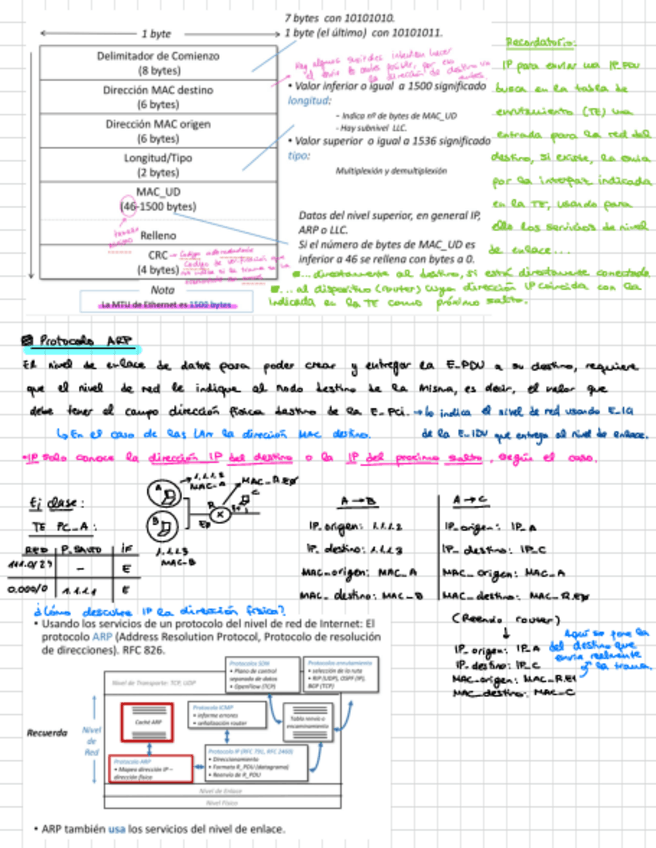 7 bytes con 10101010.
1 byte (el último) con 10101011.
1 byte
Delimitador de Comienzo
(8 bytes)
Dirección MAC destino
(6 bytes)
Dirección MAC origen
(6 bytes)
Longitud/Tipo
(2 bytes)
MAC_UD
(46-1500 bytes)
Relleno
CRC
(4 bytes)
Nota
La MTU de Ethernet es 1500 bytes
Hay algunos switches intentan hacer
el envío lo antes posible, por eso
la dirección de destino va
antes.
• Valor inferior o igual a 1500 significado
longitud:
- Indica nº de bytes de MAC_UD
- Hay subnivel LLC.
• Valor superior o igual a 1536 significado
tipo:
Multiplexión y demultiplexión
Datos del nivel superior, en general IP,
ARP o LLC.
Si el número de bytes de MAC_UD es
inferior a 46 se rellena con bytes a 0.
Recordatorio:
IP para enviar una IP_PDU
busca en la tabla de
enrutamiento (TE) una
entrada para la red del
destino, si existe, la envía
por la interfaz indicada
en la TE, usando para
ello los servicios de nivel
de enlace...
... directamente al destino, si está directamente conectado
... al dispositivo (router) cuya dirección IP coincida con la
indicada en la TE como próximo salto.
Protocolo ARP
El nivel de enlace de datos para poder crear y entregar la E_PDU a su destino, requiere
que el nivel de red le indique al nodo destino de la misma, es decir, el valor que
debe tener el campo dirección física destino de la E_PCI. → lo indica el nivel de red usando E_ICI
↳ En el caso de las LAN la dirección MAC destino.
de la E_IDU que entrega al nivel de enlace.
• IP solo conoce la dirección IP del destino o la IP del próximo salto, según el caso.
Ej clase:
TE PC_A:
RED P.SALTO IF
111.0/24 - E
0.0.0.0/0 1.1.1.1 E
A
1.1.1.2
MAC-A
MAC_R.E0
B
R
C
E0
1.1.1.3
MAC-B
A → B
IP_origen: 1.1.1.2
IP_destino: 1.1.1.3
MAC_origen: MAC_A
MAC_destino: MAC_B
A → C
IP_origen: IP_A
IP_destino: IP_C
MAC_origen: MAC_A
MAC_destino: MAC_R.E0
(Reenvío router)
↓
IP_origen: IP_A
IP_destino: IP_C
MAC_origen: MAC_R.E1
MAC_destino: MAC_C
Aquí se pone la
del destino que
envía realmente
la trama.
¿Cómo descubre IP la dirección física?
• Usando los servicios de un protocolo del nivel de red de Internet: El
protocolo ARP (Address Resolution Protocol, Protocolo de resolución
de direcciones). RFC 826.
Recuerda
Nivel
de
Red
Nivel de Transporte: TCP, UDP
Protocolo SDN
• Plano de control
separado de datos
• OpenFlow (TCP)
Protocolos enrutamiento
• selección de la ruta
• RIP (UDP), OSPF (IP),
BGP (TCP)
Caché ARP
Protocolo ICMP
• informe errores
• señalización router
Tabla reenvío o
encaminamiento
Protocolo ARP
• Mapea dirección IP –
dirección física
Protocolo IP (RFC 791, RFC 2460)
• Direccionamiento
• Formato R_PDU (datagrama)
• Reenvío de R_PDU
Nivel de Enlace
Nivel Físico
• ARP también usa los servicios del nivel de enlace.